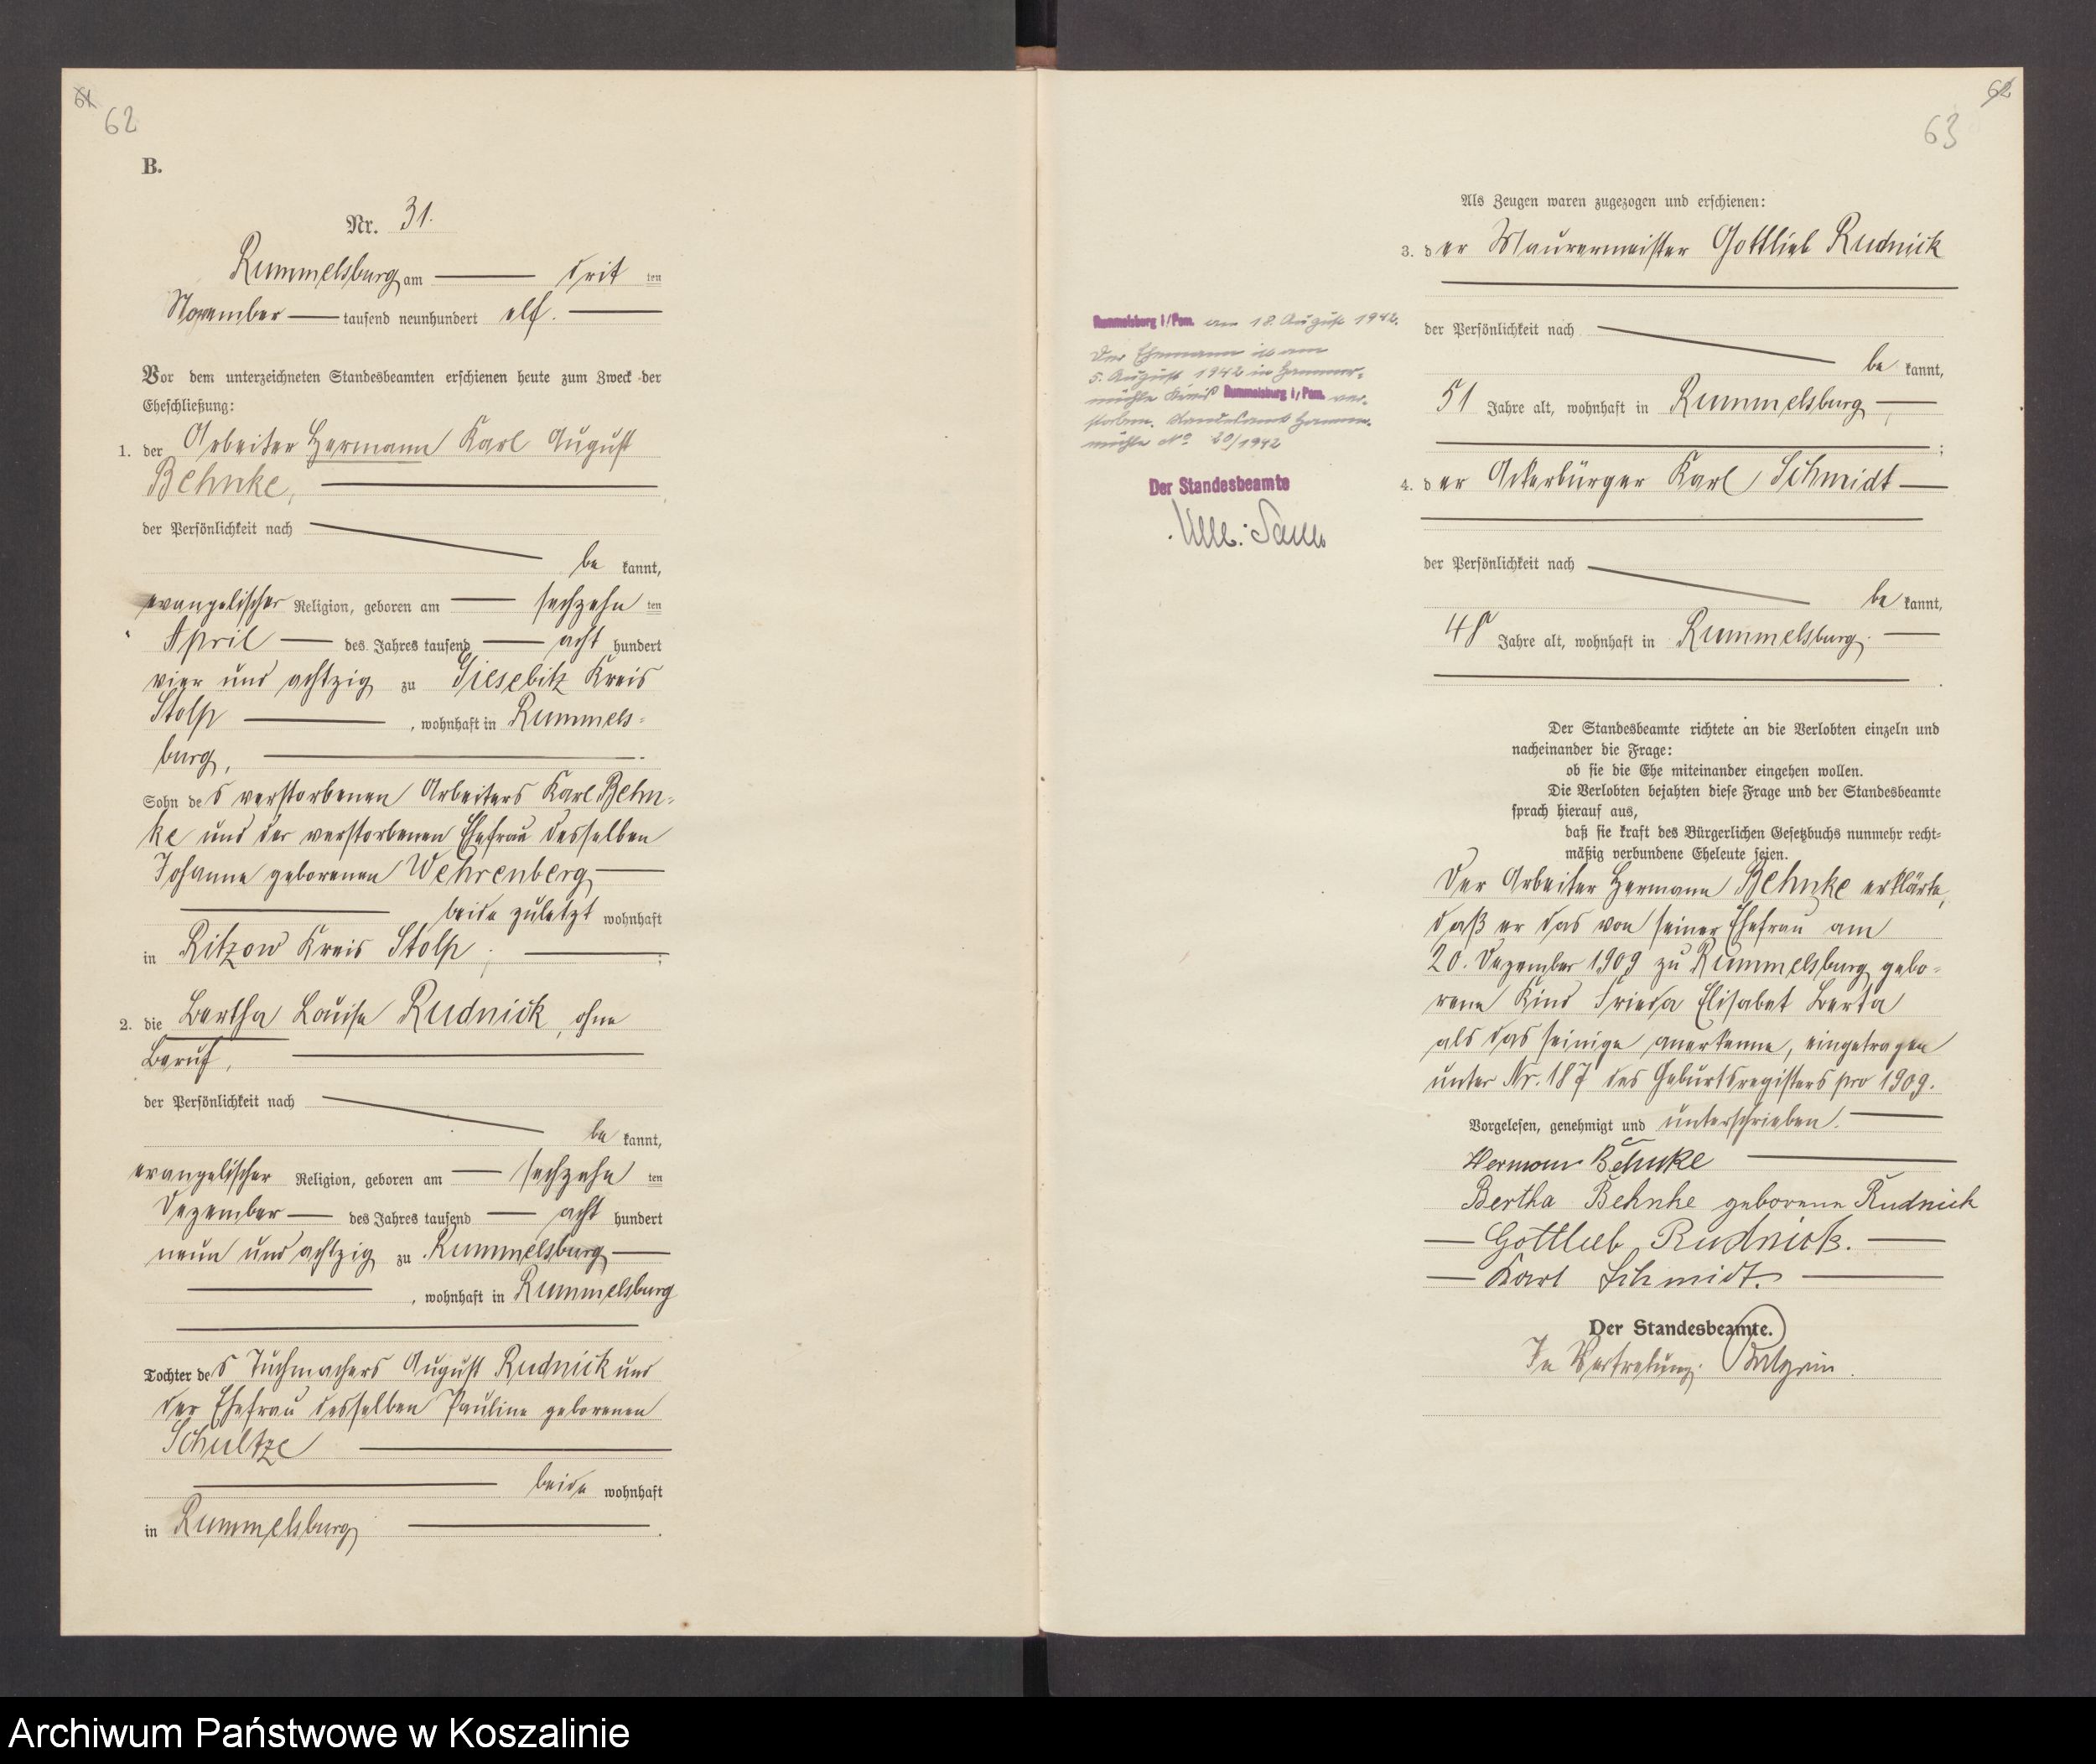 61
62
B.
Nr. 31.
Rummelsburg am drit ten
November tausend neunhundert elf.
Vor dem unterzeichneten Standesbeamten erschienen heute zum Zweck der
Eheschließung:
1. der Arbeiter Hermann Karl August
Behnke,
der Persönlichkeit nach
be kannt,
evangelischer Religion, geboren am sechzehn ten
April des Jahres tausend acht hundert
vier und achtzig zu Giesebitz Kreis
Stolp, wohnhaft in Rummels-
burg,
Sohn des verstorbenen Arbeiters Karl Behn-
ke und der verstorbenen Ehefrau desselben
Johanne geborenen Wehrenberg
beide zuletzt wohnhaft
in Ritzow Kreis Stolp;
2. die Bertha Louise Rudnick, ohne
Beruf,
der Persönlichkeit nach
be kannt,
evangelischer Religion, geboren am sechzehn ten
Dezember des Jahres tausend acht hundert
neun und achtzig zu Rummelsburg
, wohnhaft in Rummelsburg
Tochter des Tuchmachers August Rudnick und
der Ehefrau desselben Pauline geborenen
Schultze
beide wohnhaft
in Rummelsburg.
62
63
Als Zeugen waren zugezogen und erschienen:
3. der Maurermeister Gottlieb Rudnick
der Persönlichkeit nach
be kannt,
51 Jahre alt, wohnhaft in Rummelsburg
;
4. der Ackerbürger Karl Schmidt
der Persönlichkeit nach
be kannt,
48 Jahre alt, wohnhaft in Rummelsburg.
Rummelsburg i/Pom. am 18. August 1942.
Der Ehemann ist am
5. August 1942 in Hammer-
mühle Kreis Rummelsburg i/Pom. ver-
storben. Standesamt Hammer-
mühle No 20/1942
Der Standesbeamte
Der Standesbeamte richtete an die Verlobten einzeln und
nacheinander die Frage:
ob sie die Ehe miteinander eingehen wollen.
Die Verlobten bejahten diese Frage und der Standesbeamte
sprach hierauf aus,
daß sie kraft des Bürgerlichen Gesetzbuchs nunmehr recht-
mäßig verbundene Eheleute seien.
Der Arbeiter Hermann Behnke erklärte,
daß er das von seiner Ehefrau am
20. Dezember 1909 zu Rummelsburg gebo-
rene Kind Frieda Elisabet Berta
als das seinige anerkenne, eingetragen
unter Nr. 187 des Geburtsregisters pro 1909.
Vorgelesen, genehmigt und unterschrieben.
Herman Behnke
Bertha Behnke geborene Rudnick
Gottlieb Rudnick.
Karl Schmidt.
Der Standesbeamte.
In Vertretung:
Archiwum Państwowe w Koszalinie